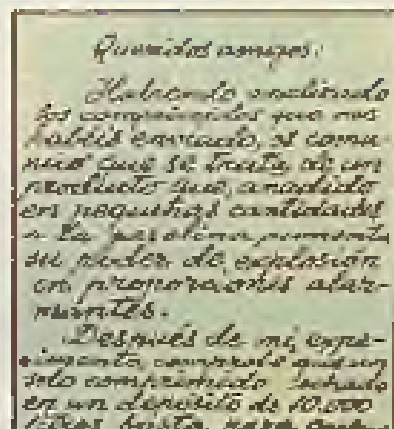 Queridos amigos:
Habiendo analizado
los comprimidos que me
habéis enviado, os comu-
nico que se trata de un
producto que, añadido
en pequeñas cantidades
a la gasolina, aumenta
su poder de explosión
en proporciones alar-
mantes.
Después de mi expe-
rimento, comprobé que un
solo comprimido echado
en un depósito de 10.000
litros basta para que